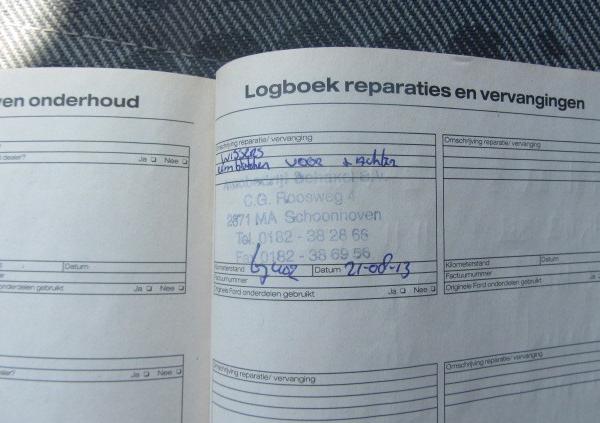 ven onderhoud
dealer? Ja Nee
Datum
onderdelen gebruikt Ja Nee
dealer? Ja Nee
Logboek reparaties en vervangingen
Omschrijving reparatie/ vervanging
wissers
voor + achter
C.G. Roosweg 4
2871 MA Schoonhoven
Tel. 0182 - 38 28 66
Fax 0182 - 38 69 56
Kilometerstand Datum 21-08-13
Factuurnummer
Originele Ford onderdelen gebruikt Ja Nee
Omschrijving reparatie/ vervanging
Omschrijving reparatie/ vervanging
Kilometerstand Datum
Factuurnummer
Originele Ford onderdelen gebruikt Ja Nee
Omschrijving reparatie/ vervanging